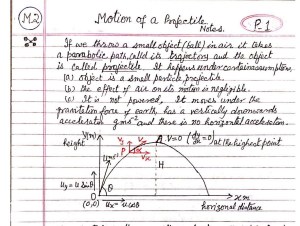 M2
Motion of a Projectile
Notes.
P-1
If we throw a small object (ball) in air it takes
a parabolic path, called its trajectory and the object
is called projectile. It happens under certain assumptions.
(a) object is a small particle, projectile.
(b) the effect of air on its motion is negligible.
(c) It is not powered, It moves under the
gravitation force of earth, has a vertically downwards
acceleration g ms⁻² and there is no horizontal acceleration.
y(m)
height
A V=0 (dy/dx = 0) at the highest point
P
H
u ms⁻¹
uy = u sinθ
θ
(0,0) ux = u cosθ
x m
horizontal distance